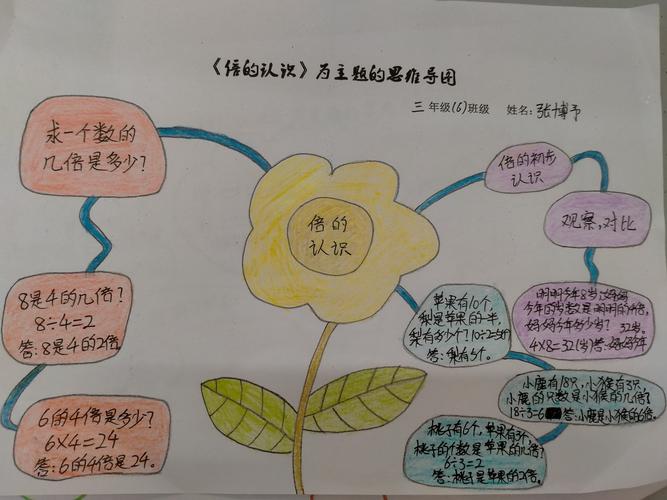 《倍的认识》为主题的思维导图
三年级(6)班级 姓名:张博予
求一个数的
几倍是多少?
8是4的几倍?
8÷4=2
答:8是4的2倍。
6的4倍是多少?
6×4=24
答:6的4倍是24。
倍的
认识
倍的初步
认识
观察,对比
明明今年8岁,妈妈
今年的岁数是明明的4倍,
妈妈今年多少岁?
4×8=32(岁)答:妈妈今年
32岁。
苹果有10个,
梨是苹果的一半,
梨有多少个?10÷2=5(个)
答:梨有5个。
小鹿有18只,小猴有3只,
小鹿的只数是小猴的几倍?
18÷3=6 答:小鹿是小猴的6倍。
桃子有6个,苹果有3个,
桃子的个数是苹果的几倍?
6÷3=2
答:桃子是苹果的2倍。